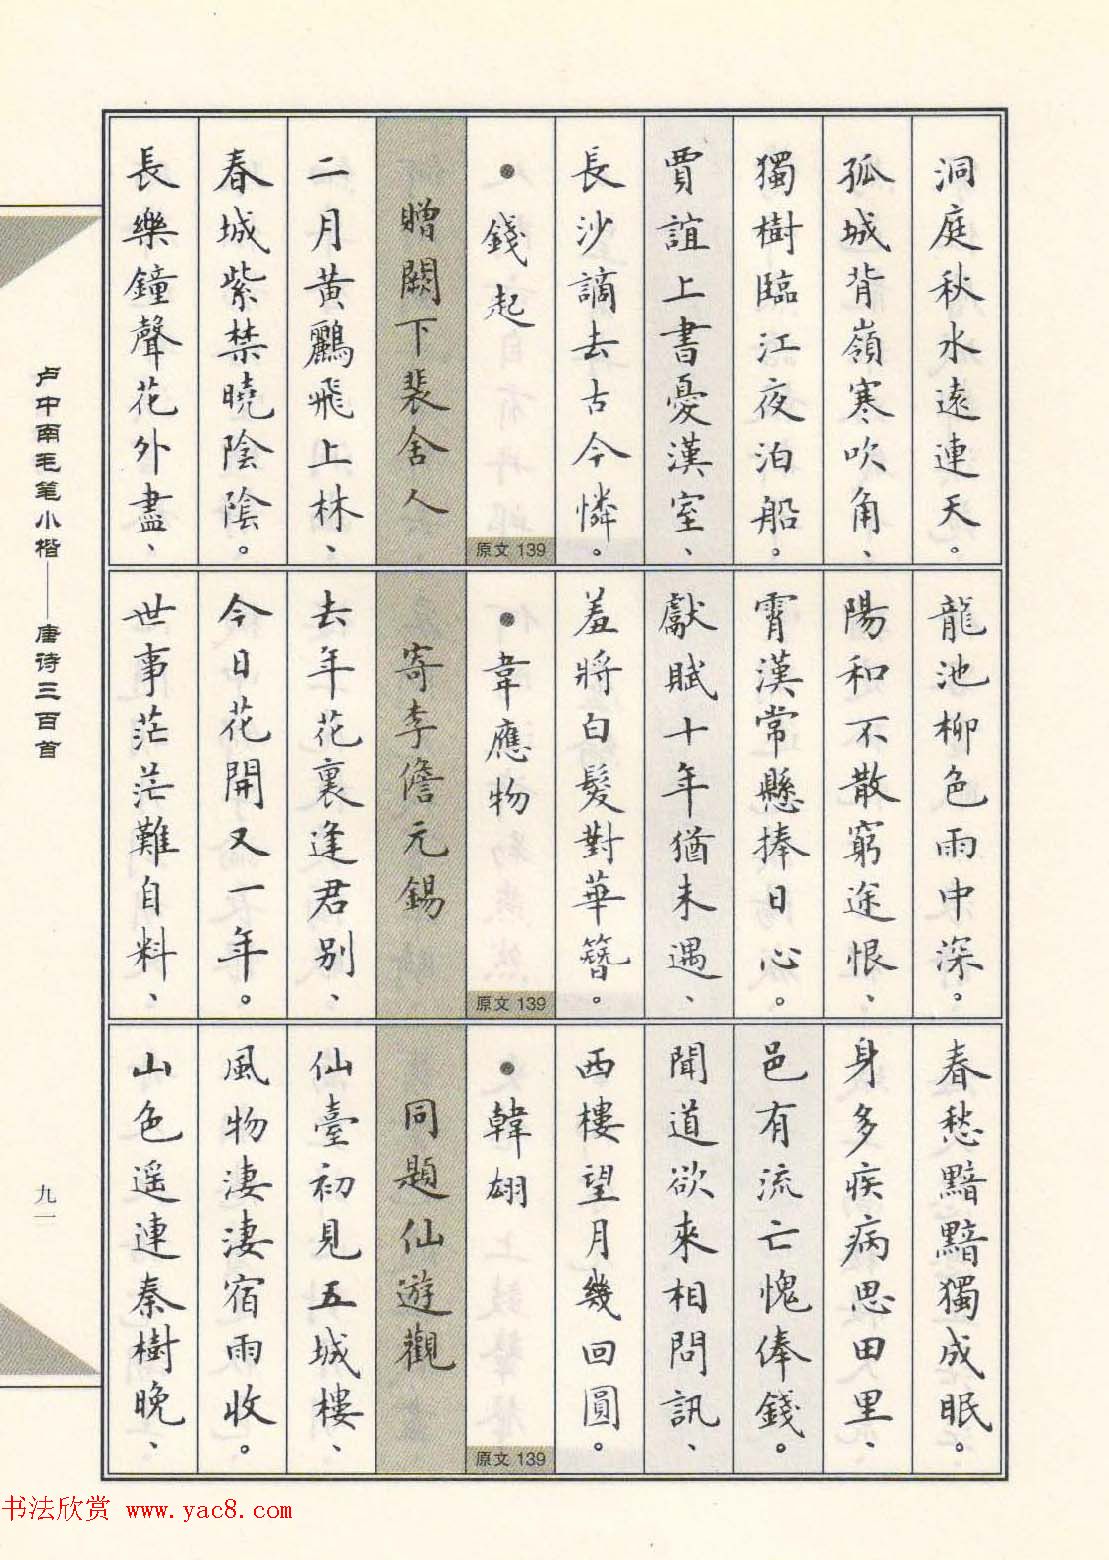 洞庭秋水遠連天。
孤城背嶺寒吹角、
獨樹臨江夜泊船。
賈誼上書憂漢室、
長沙謫去古今憐。
●錢起
原文 139
贈闕下裴舍人
二月黃鸝飛上林、
春城紫禁曉陰陰。
長樂鐘聲花外盡、
龍池柳色雨中深。
陽和不散窮途恨、
霄漢常懸捧日心。
獻賦十年猶未遇、
羞將白髮對華簪。
●韋應物
原文 139
寄李儋元錫
去年花裏逢君别、
今日花開又一年。
世事茫茫難自料、
春愁黯黯獨成眠。
身多疾病思田里、
邑有流亡愧俸錢。
聞道欲來相問訊、
西樓望月幾回圓。
●韓翃
原文 139
同題仙遊觀
仙臺初見五城樓、
風物淒淒宿雨收。
山色遥連秦樹晚、
卢中南毛笔小楷——唐诗三百首
九一
书法欣赏 www.yac8.com